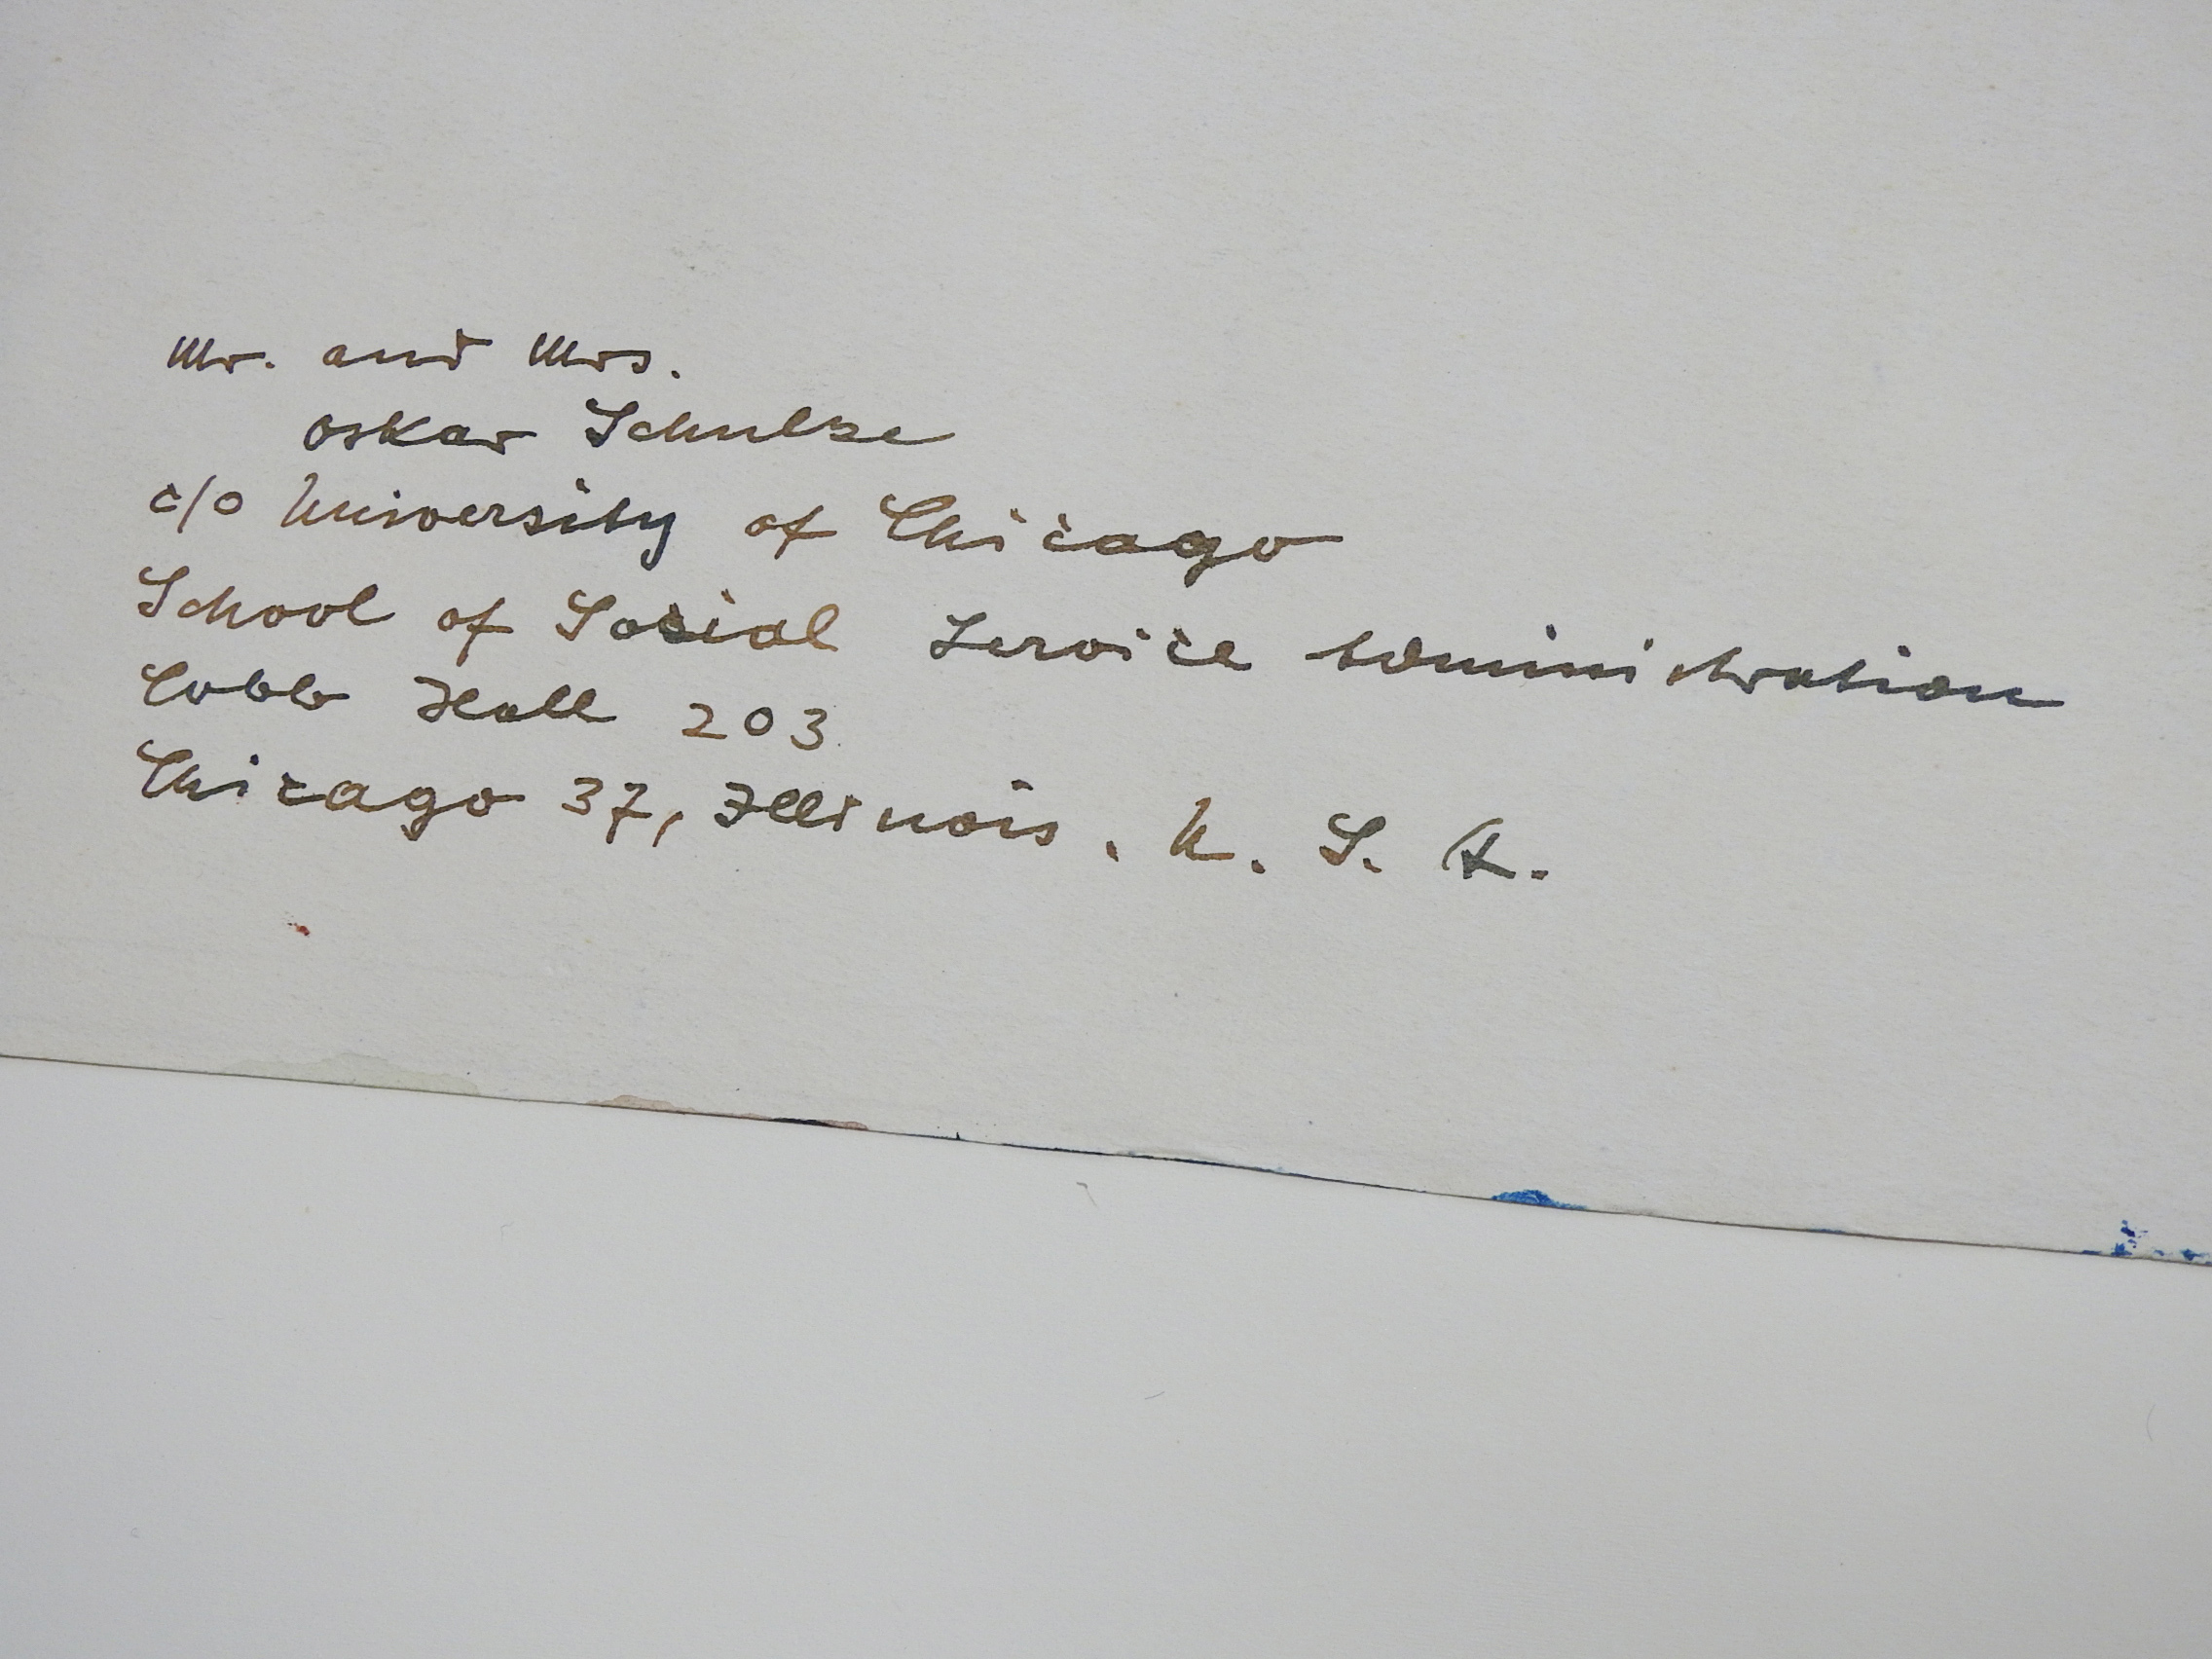 Mr. and Mrs.
Oskar Schulze
c/o University of Chicago
School of Social Service Administration
Cobb Hall 203
Chicago 37, Illinois. U. S. A.